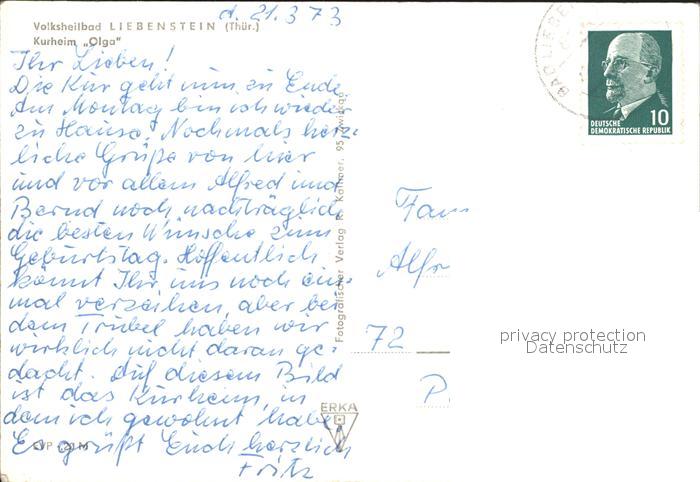 d. 21.3.73
Volksheilbad LIEBENSTEIN (Thür.)
Kurheim „Olga"
Ihr Lieben!
Die Kur geht nun zu Ende.
Am Montag bin ich wieder
zu Hause. Nochmals herz-
liche Grüße von hier
und vor allem Alfred und
Bernd noch nachträglich
die besten Wünsche zum
Geburtstag. Hoffentlich
könnt Ihr uns noch ein-
mal verzeihen, aber bei
dem Trubel haben wir
wirklich nicht daran ge-
dacht. Auf diesem Bild
ist das Kurheim, in
dem ich gewohnt habe.
Es grüßt Euch herzlich
Fritz
Fotografischer Verlag R. Kallmer, 95 Zwickau
ERKA
BAD LIEBE
DEUTSCHE
DEMOKRATISCHE REPUBLIK
10
Fam
Alfr
72
P.
privacy protection
Datenschutz